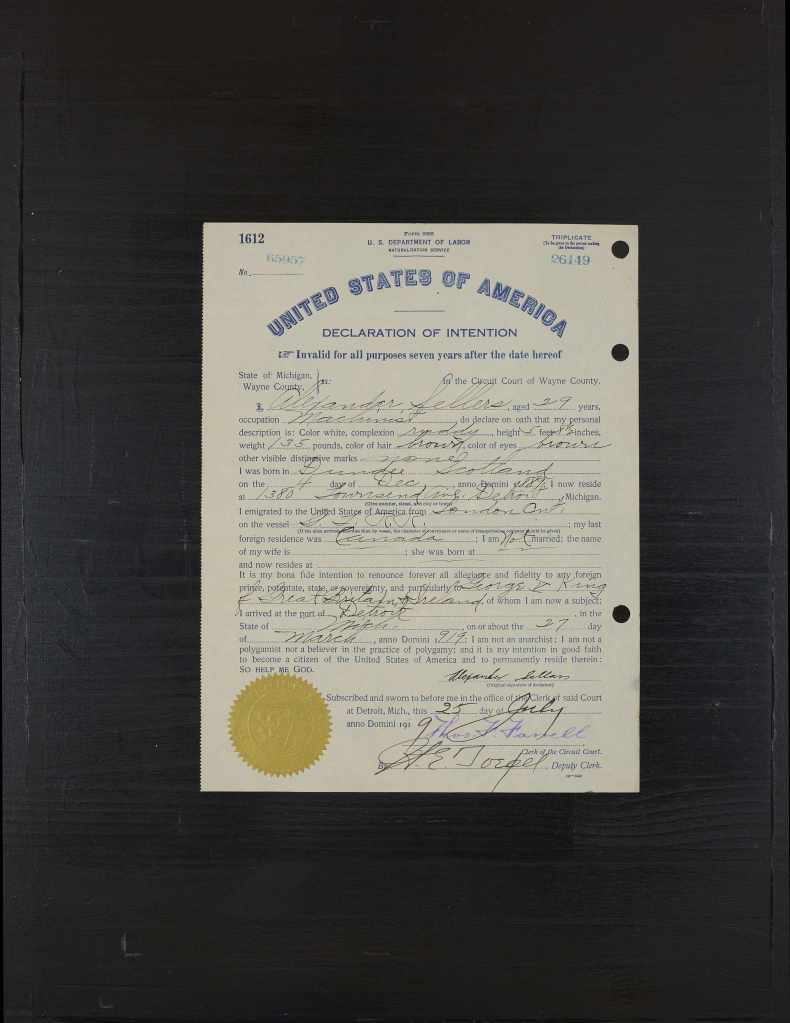 1612
Form 2203
U. S. DEPARTMENT OF LABOR
NATURALIZATION SERVICE
TRIPLICATE
(To be given to the person making the Declaration)
No. 65957
26149
UNITED STATES OF AMERICA
DECLARATION OF INTENTION
Invalid for all purposes seven years after the date hereof
State of Michigan, Wayne County, } ss: In the Circuit Court of Wayne County.
I, Alexander Sellers, aged 29 years,
occupation Machinist, do declare on oath that my personal
description is: Color white, complexion ruddy, height 5 feet inches,
weight 135 pounds, color of hair brown, color of eyes brown
other visible distinctive marks none
I was born in Dundee Scotland
on the 4 day of Dec, anno Domini I now reside
at 1380 Townsend Ave. Detroit, Michigan.
(Give number, street, and city or town)
I emigrated to the United States of America from London Ont.
on the vessel G. T. R.R.; my last
(If the alien arrived otherwise than by vessel, the character of conveyance or name of transportation company should be given)
foreign residence was Canada; I am Not married; the name
of my wife is ; she was born at
and now resides at
It is my bona fide intention to renounce forever all allegiance and fidelity to any foreign
prince, potentate, state, or sovereignty, and particularly to George V King
of Great Britain & Ireland, of whom I am now a subject;
I arrived at the port of Detroit, in the
State of Mich., on or about the 27 day
of March, anno Domini 1919; I am not an anarchist; I am not a
polygamist nor a believer in the practice of polygamy; and it is my intention in good faith
to become a citizen of the United States of America and to permanently reside therein:
SO HELP ME GOD.
Alexander Sellars
(Original signature of declarant)
Subscribed and sworn to before me in the office of the Clerk of said Court
at Detroit, Mich., this 25 day of July
anno Domini 1919
Thos F. Farrell
Clerk of the Circuit Court.
By , Deputy Clerk.